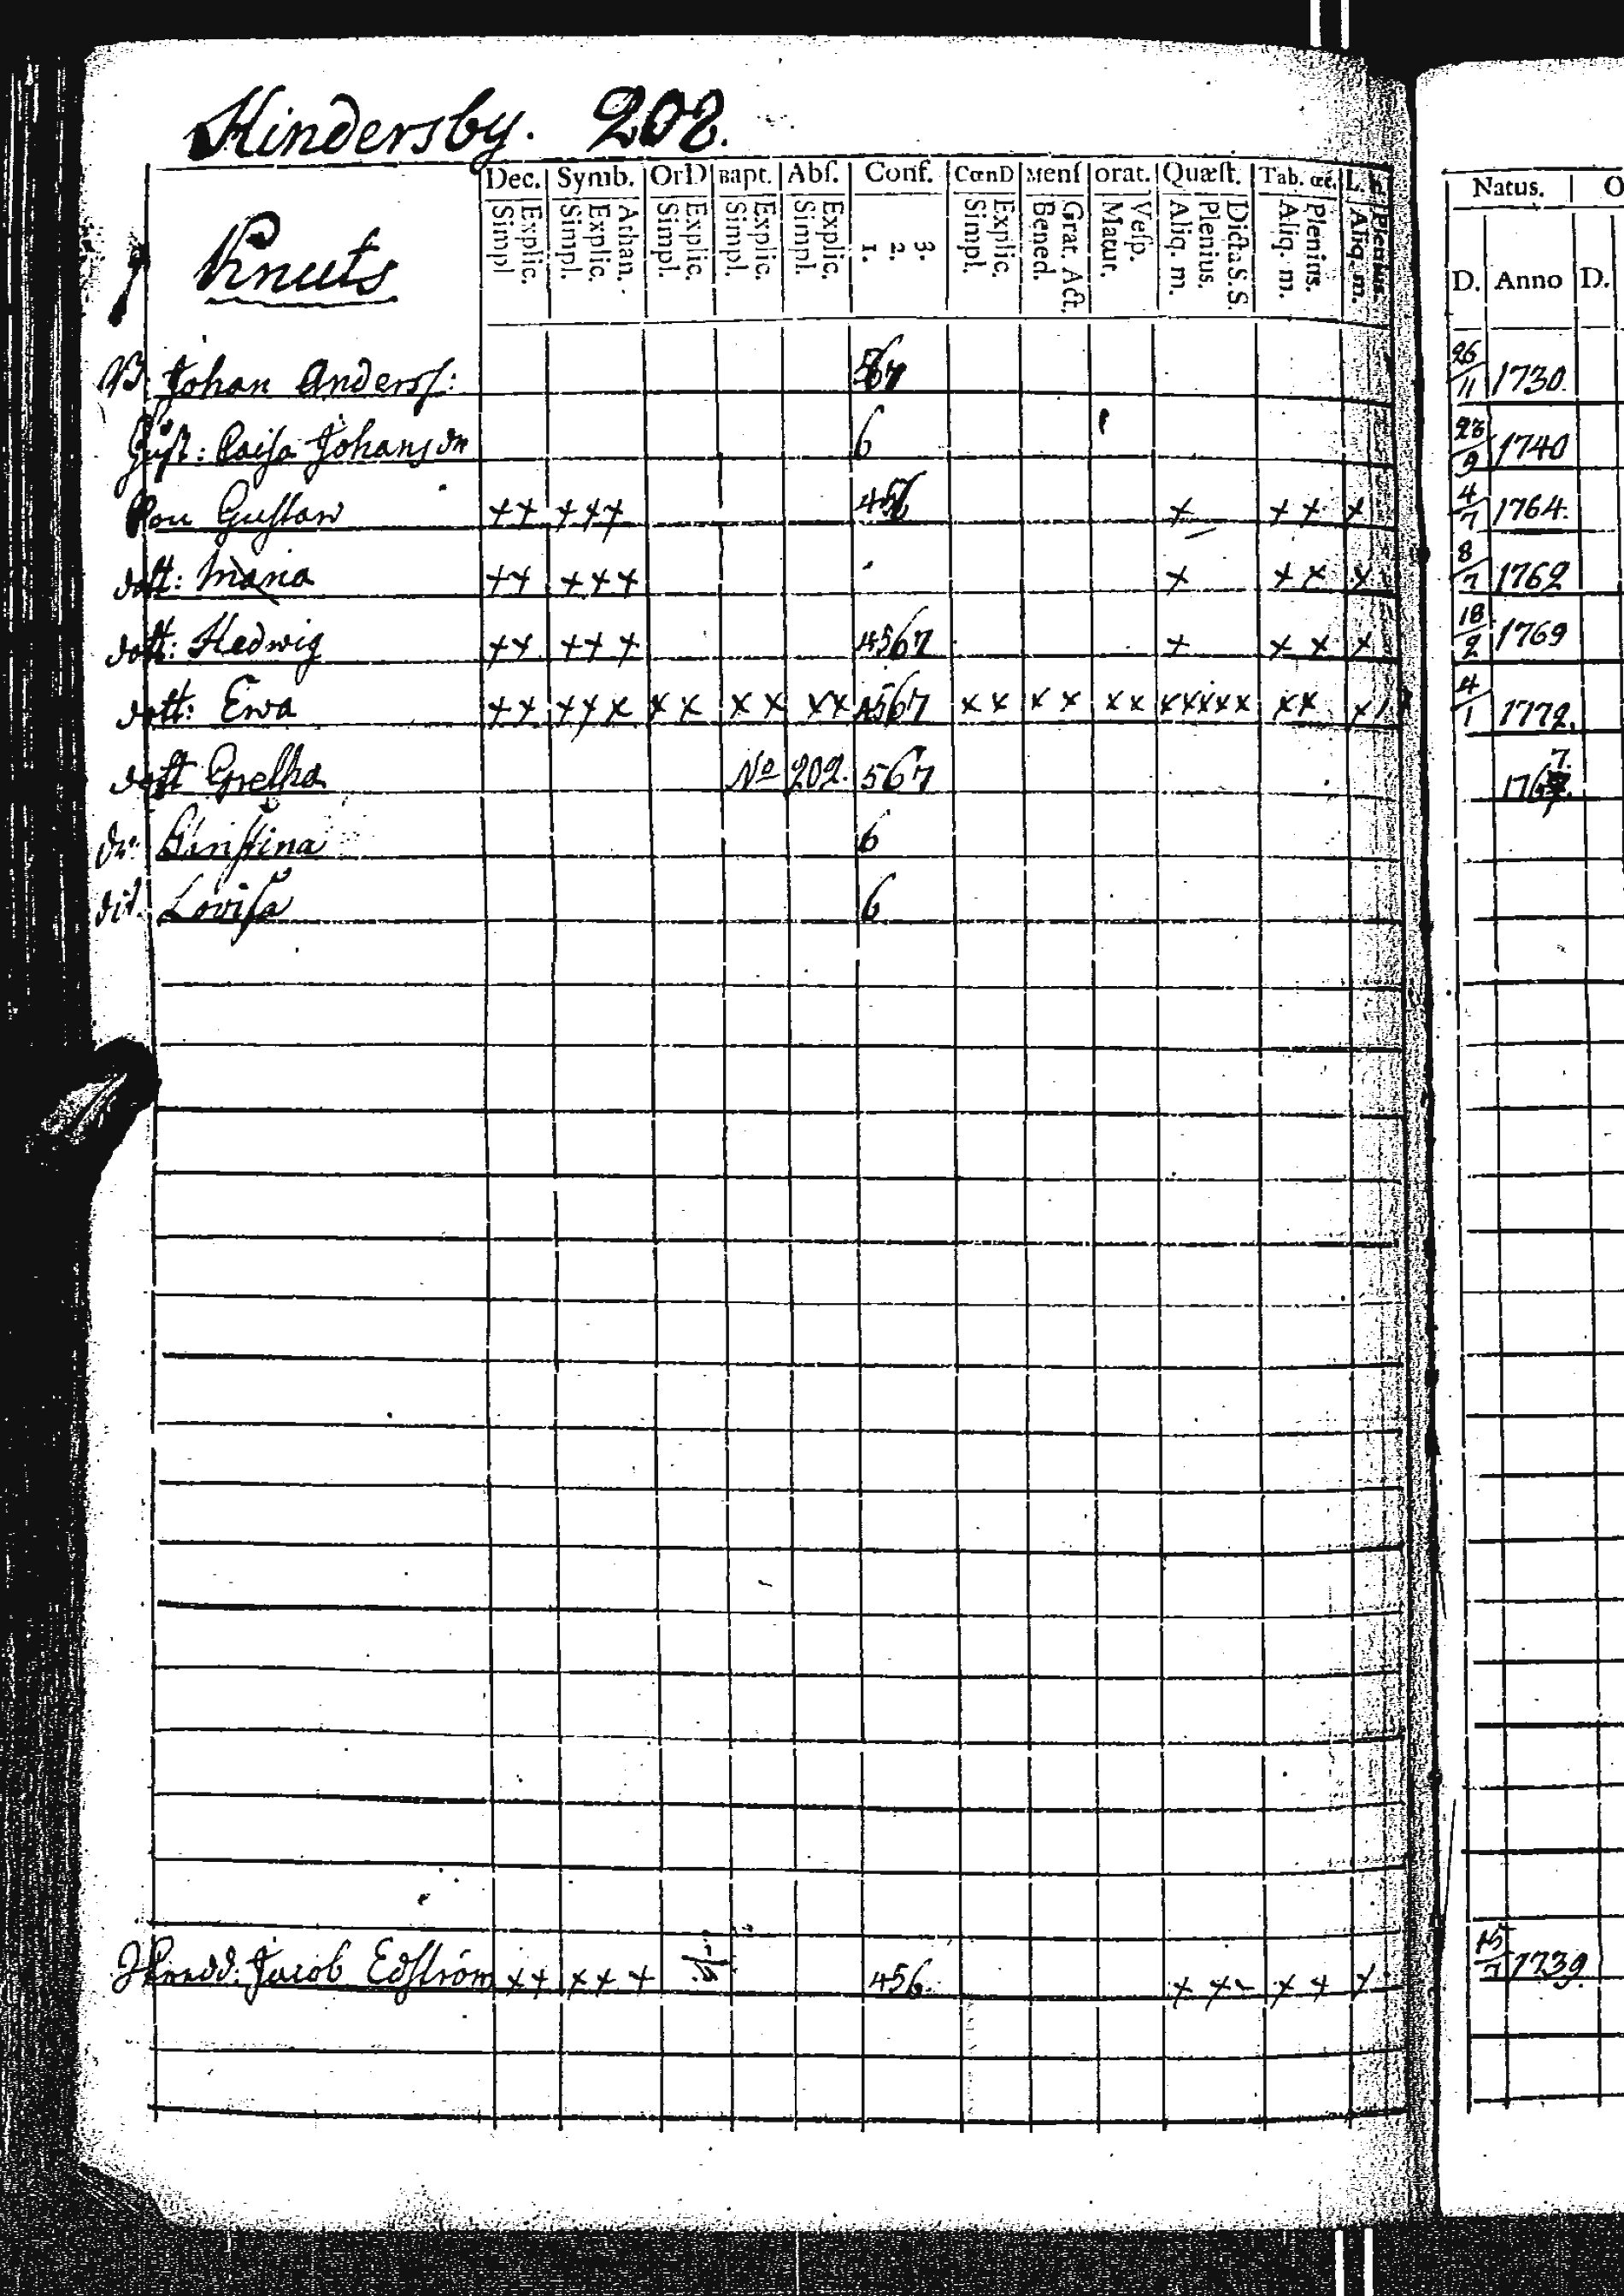 Hindersby. 208.
Dec. Symb. OrD Bapt. Abſ. Conf. CœnD Menſ orat. Quæſt. Tab. œc. L. h. Natus.
Knuts
Simpl Explic. Simpl. Explic. Athan. Simpl. Explic. Simpl. Explic. Simpl. Explic. 1. 2. 3. Simpl. Explic. Bened. Grat. Act. Matut. Veſp. Aliq. m. Plenius. Dicta S. S. Aliq. m. Plenius. Aliq. m. Plenius. D. Anno D.
B: Johan Anderſ: 567 26/11 1730.
Huſt: Caiſa Johans dr 6 23/9 1740
Son Guſtav ++ +++ 456 + ++ + 4/7 1764.
dott: Maria ++ +++ + ++ + 8/7 1762
dott: Hedwig ++ +++ 4567 + ++ + 18/2 1769
dott: Ewa ++ +++ xx xx xx 4567 xx xx xx xxxxx xx x 4/1 1772.
dott Gretha No 202. 567 1767.
dr: Christina 6
dit. Loviſa 6
Jacob Edström ++ +++ 456. ++- ++ + 1739.